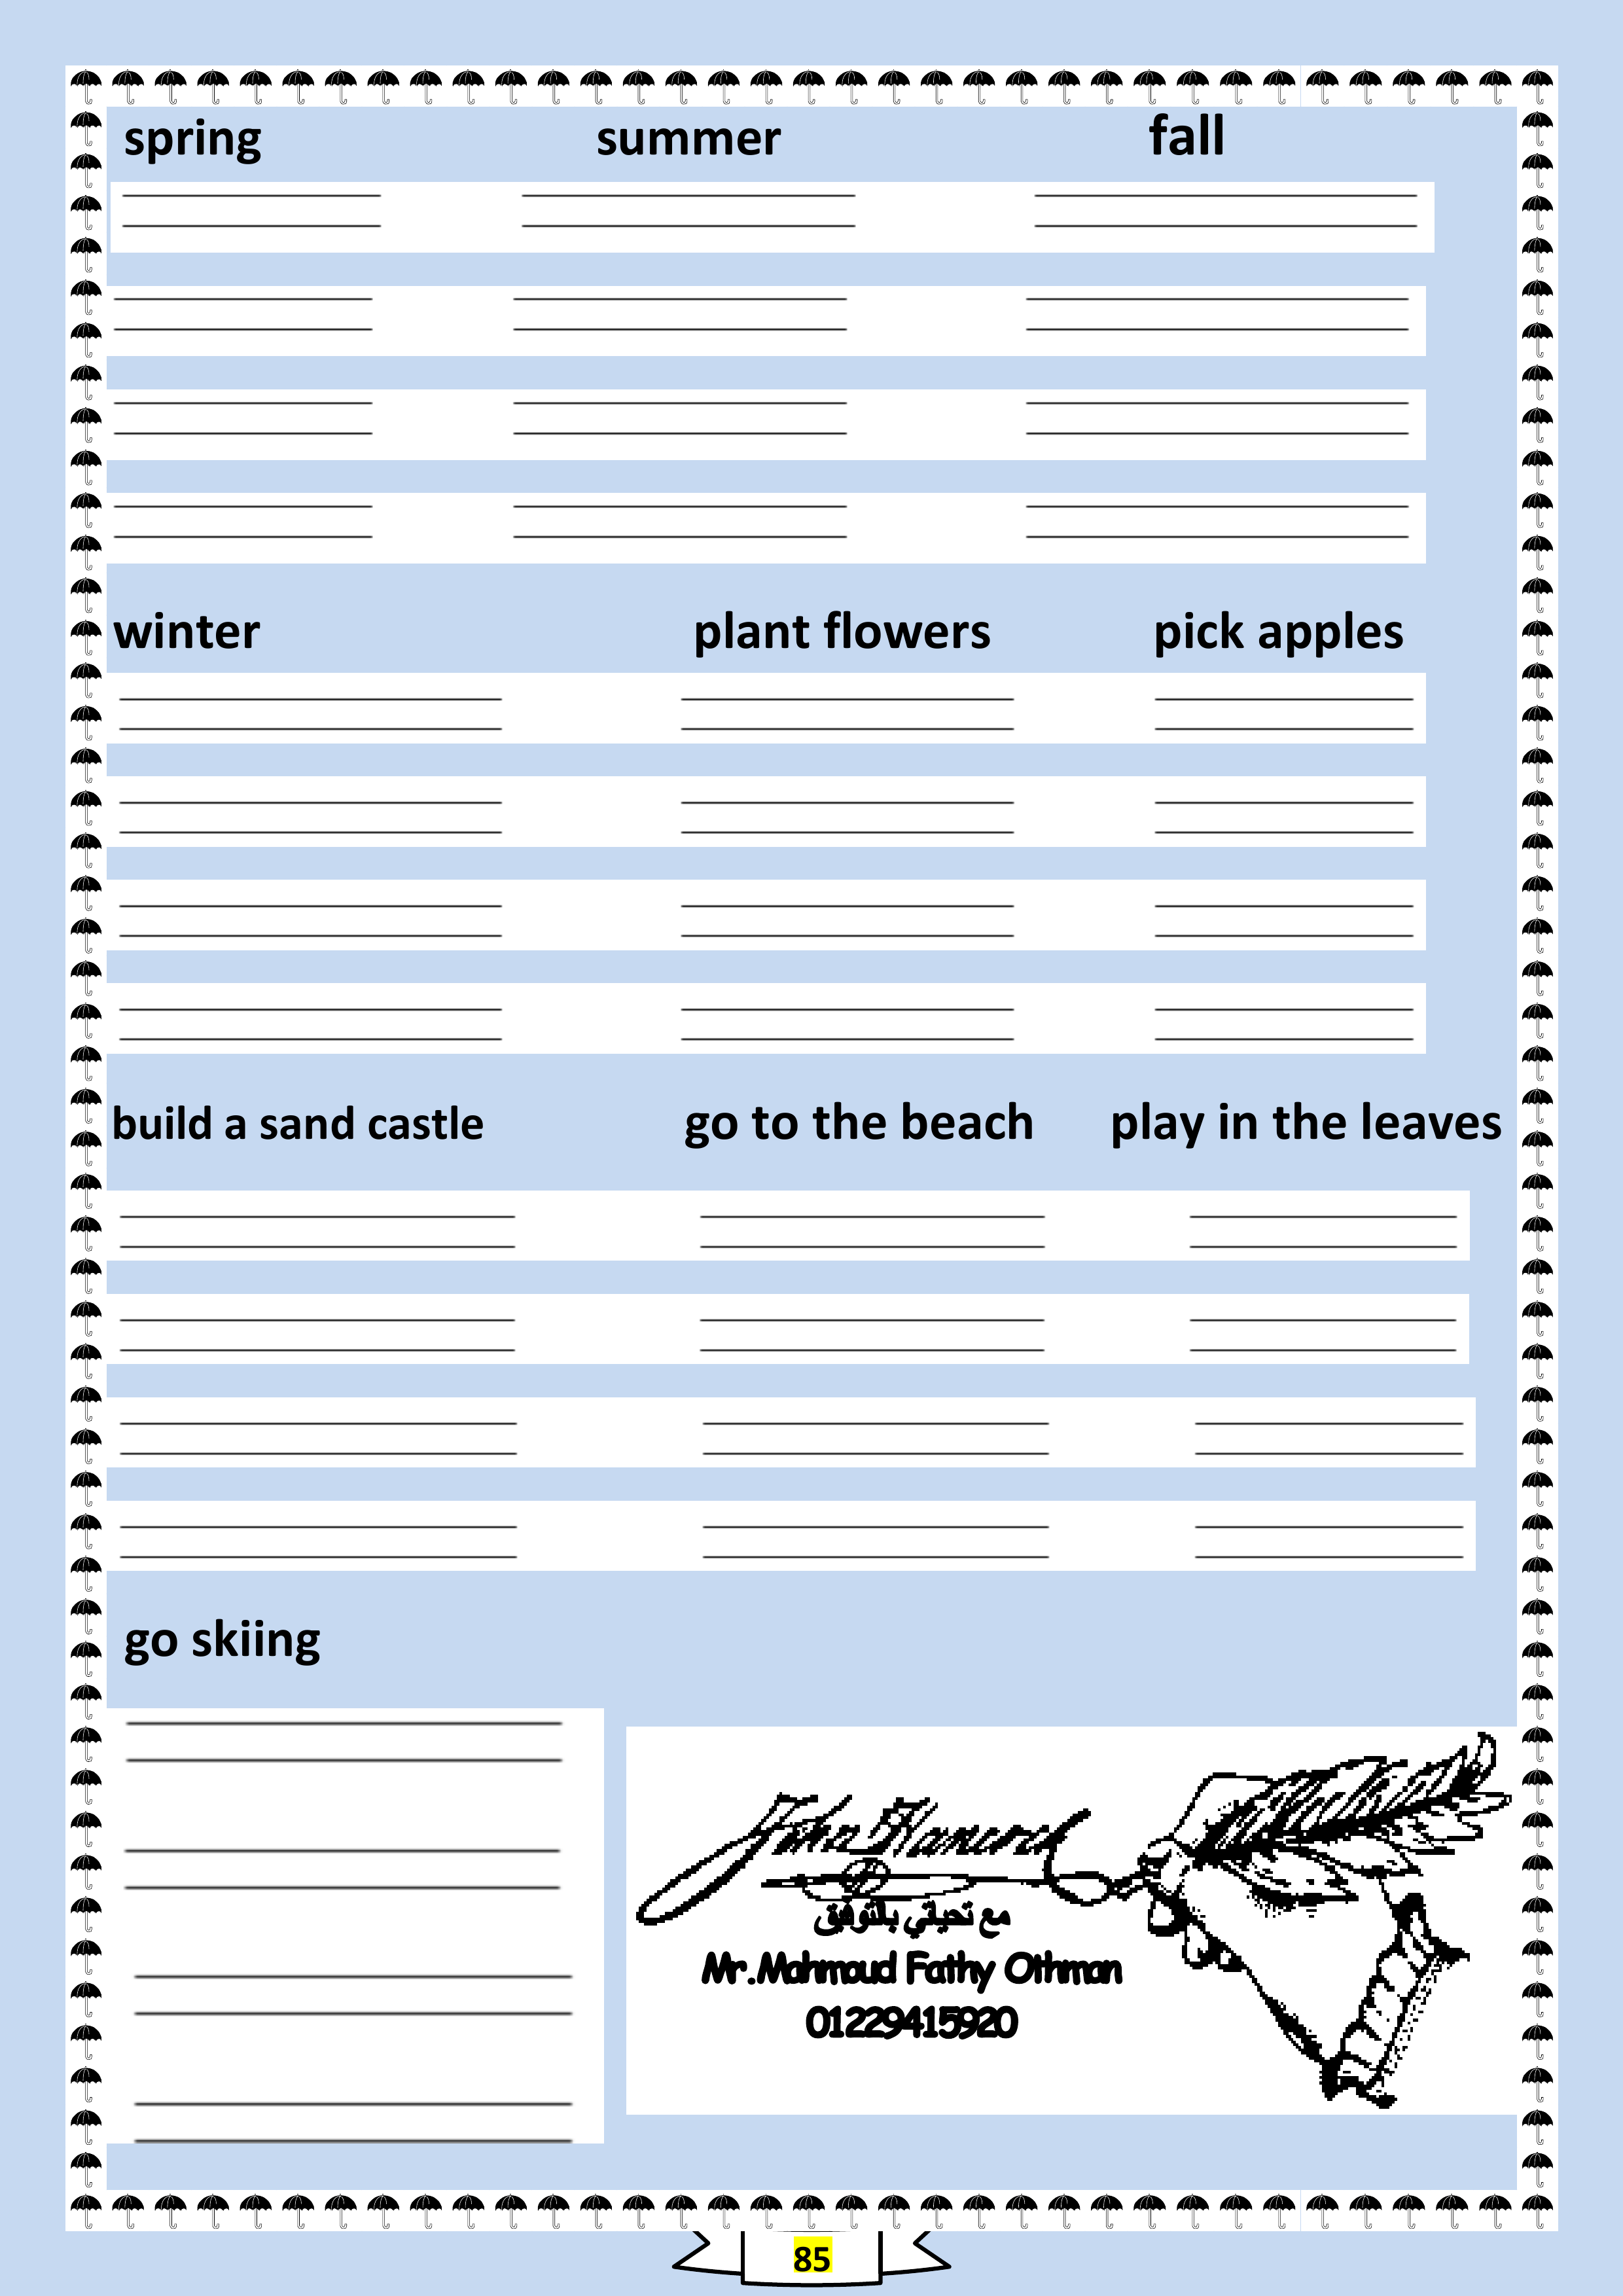 spring summer fall
winter plant flowers pick apples
build a sand castle go to the beach play in the leaves
go skiing
John Hancock
مع تحياتي بالتوفيق
Mr.Mahmoud Fathy Othman
01229415920
85